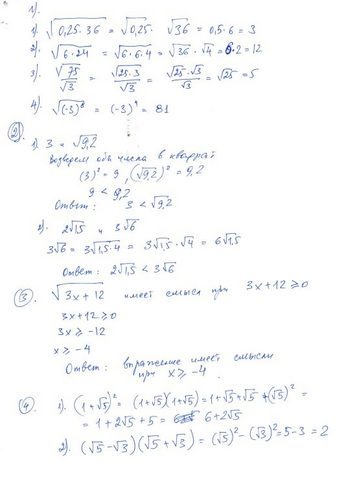 1).
1) √0,25·36 = √0,25 · √36 = 0,5·6 = 3
2). √6·24 = √6·6·4 = √36 · √4 = 6·2 = 12
3). √75/√3 = √25·3/√3 = √25·√3/√3 = √25 = 5
4). √(-3)⁸ = (-3)⁴ = 81
2)
1). 3 и √9,2
Возведем оба числа в квадрат
(3)² = 9, (√9,2)² = 9,2
9 < 9,2
Ответ: 3 < √9,2
2). 2√1,5 и 3√6
3√6 = 3√1,5·4 = 3√1,5·√4 = 6√1,5
Ответ: 2√1,5 < 3√6
3). √3x + 12 имеет смысл при 3x+12 ≥ 0
3x+12 ≥ 0
3x ≥ -12
x ≥ -4
Ответ: выражение имеет смысл
при x ≥ -4.
4) 1). (1+√5)² = (1+√5)(1+√5) = 1+√5+√5+(√5)² =
= 1+2√5+5 = 6+2√5
2). (√5-√3)(√5+√3) = (√5)²-(√3)² = 5-3 = 2